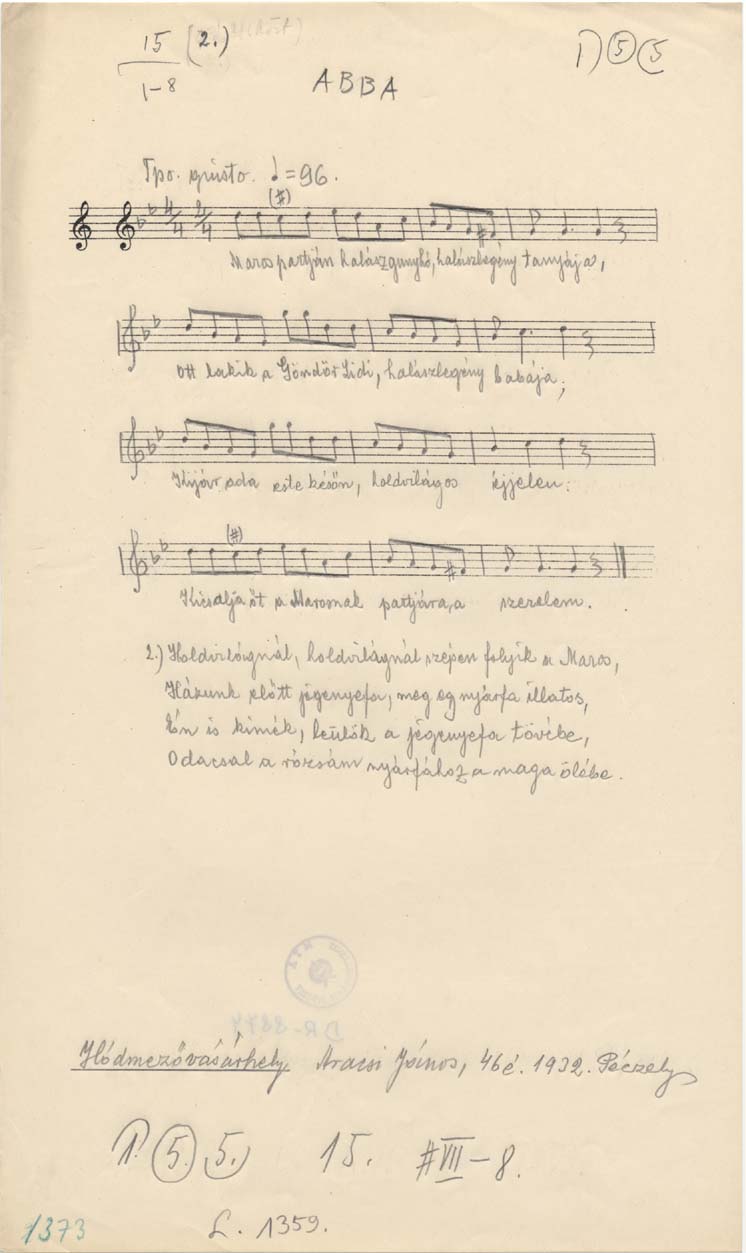 15 (2.)
1-8
1) 5 (5
ABBA
Tpo. giusto. ♩=96.
(#)
Maros partján halászgunyhó, halászlegény tanyája,
Ott lakik a Göndör Lidi, halászlegény babája,
Kijár oda este későn, holdvilágos éjjelen:
(#)
Kicsalja őt a Marosnak partjára, a szerelem.
2.) Holdvilágnál, holdvilágnál szépen folyik a Maros,
Házunk előtt jegenyefa, meg egy nyárfa illatos,
Én is kimék, leülök a jegenyefa tövébe,
Odacsal a rózsám nyárfához a maga ölébe.
DR-8874
Hódmezővásárhely. Aracsi János, 46 é. 1932. Péczely
1. 5. 5. 15. #VII-8.
1373 L. 1359.